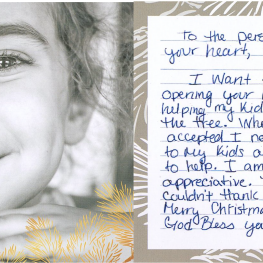 To the pers
your heart,
I want
opening your
helping my kid
the tree. Whe
accepted I ne
to my kids a
to help. I am
appreciative.
couldn't thank
Merry Christma
God Bless yo